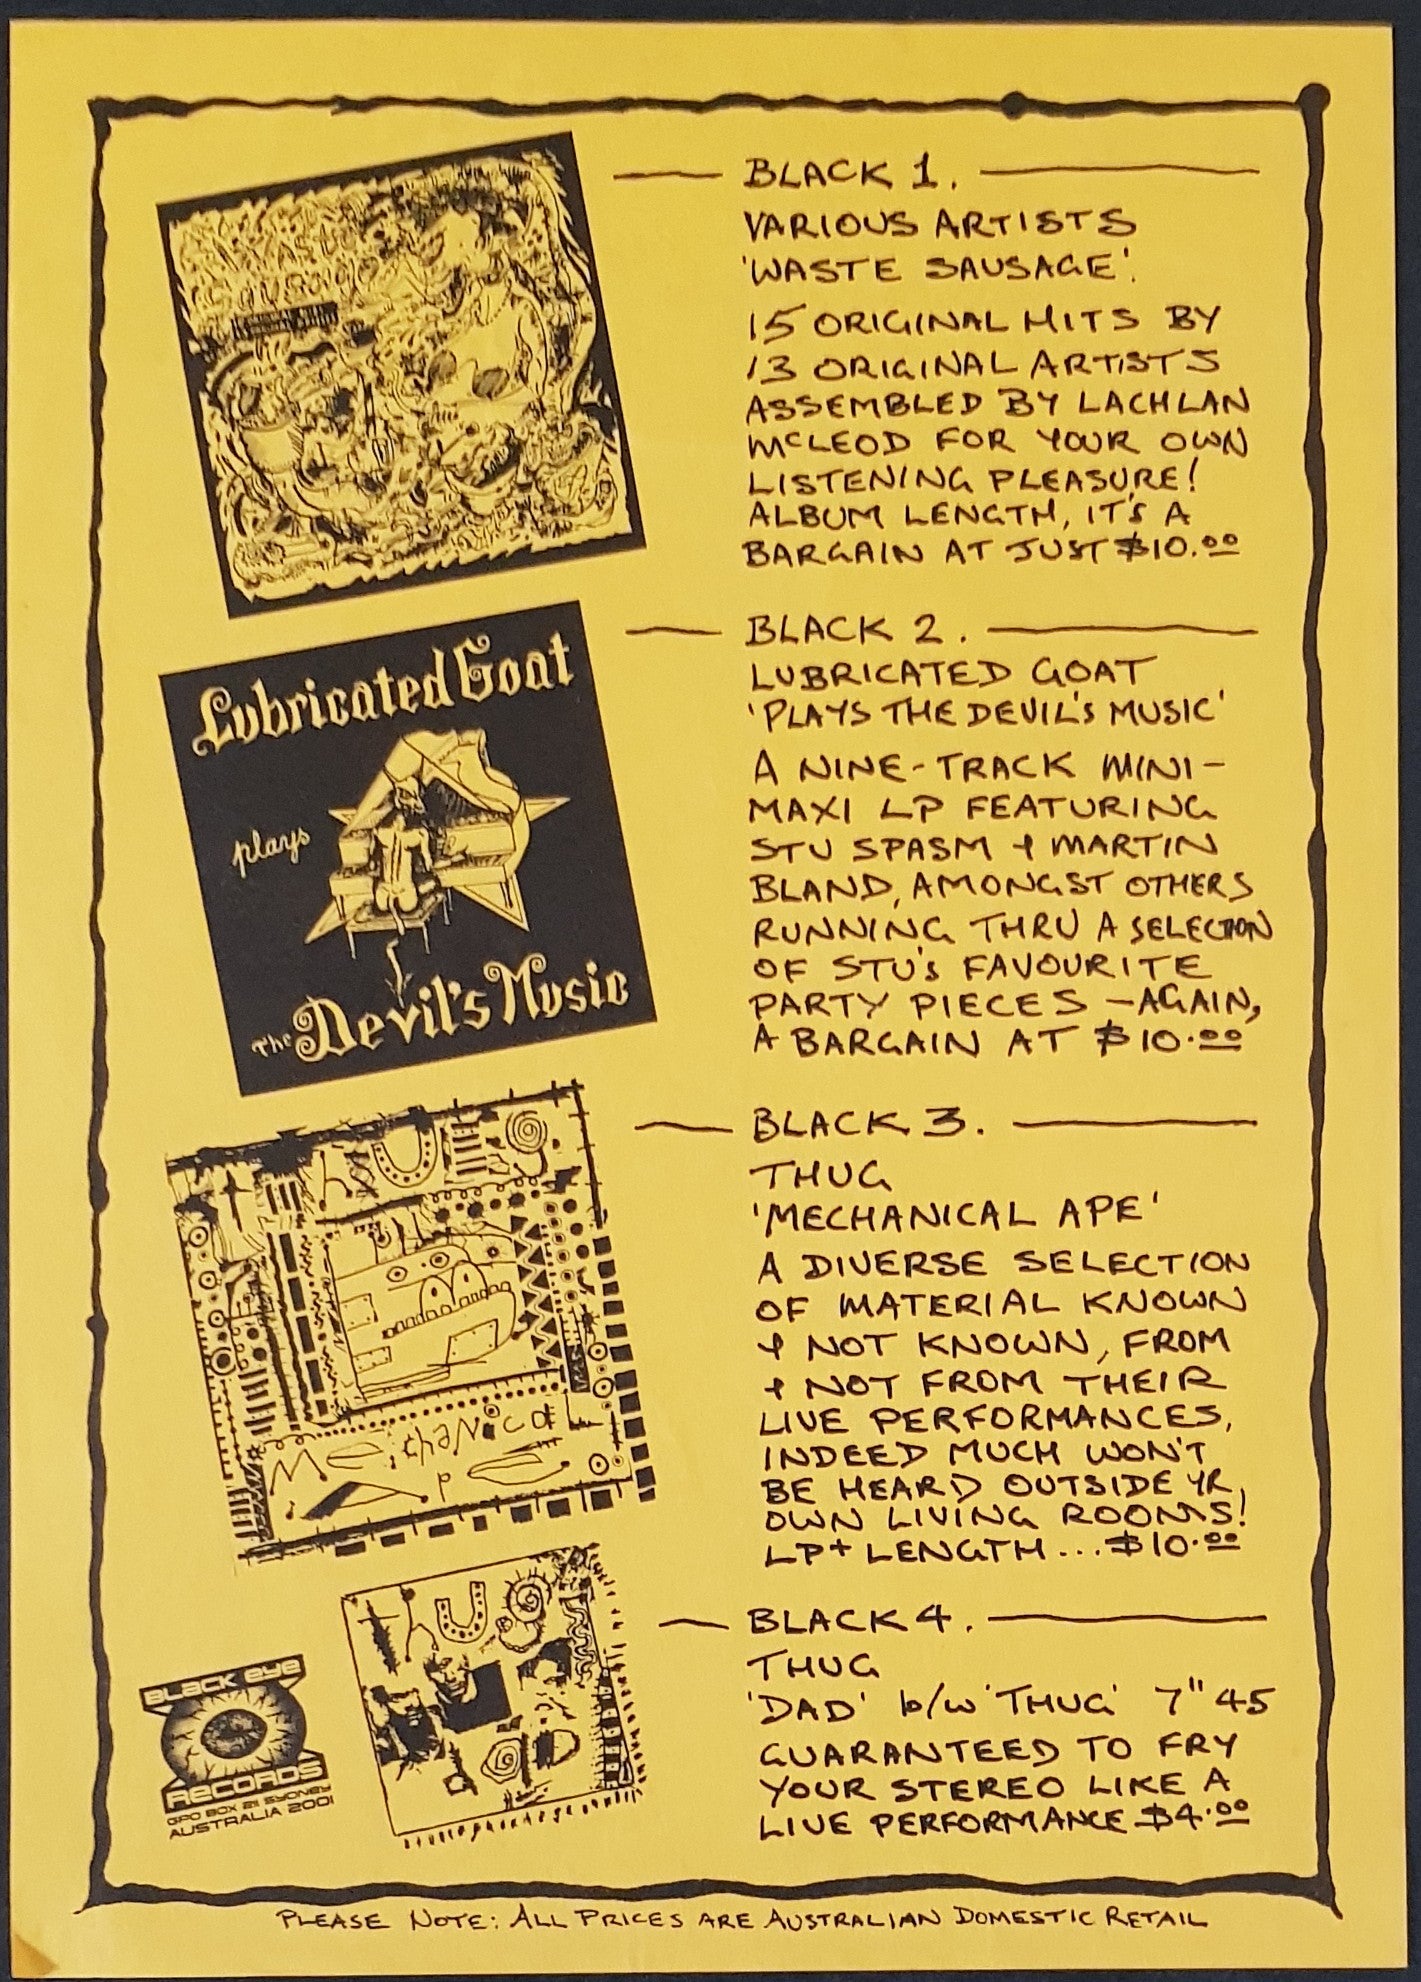 BLACK 1.
VARIOUS ARTISTS
'WASTE SAUSAGE'.
15 ORIGINAL HITS BY
13 ORIGINAL ARTISTS
ASSEMBLED BY LACHLAN
McLEOD FOR YOUR OWN
LISTENING PLEASURE!
ALBUM LENGTH, IT'S A
BARGAIN AT JUST $10.00
Lubricated Goat
plays
The Devil's Music
BLACK 2.
LUBRICATED GOAT
'PLAYS THE DEVIL'S MUSIC'
A NINE-TRACK MINI-
MAXI LP FEATURING
STU SPASM & MARTIN
BLAND, AMONGST OTHERS
RUNNING THRU A SELECTION
OF STU'S FAVOURITE
PARTY PIECES - AGAIN,
A BARGAIN AT $10.00
MechaNicaL
APE
BLACK 3.
THUG
'MECHANICAL APE'
A DIVERSE SELECTION
OF MATERIAL KNOWN
& NOT KNOWN, FROM
& NOT FROM THEIR
LIVE PERFORMANCES,
INDEED MUCH WON'T
BE HEARD OUTSIDE YR
OWN LIVING ROOMS!
LP+ LENGTH...$10.00
BLACK 4.
THUG
'DAD' b/w 'THUG' 7" 45
GUARANTEED TO FRY
YOUR STEREO LIKE A
LIVE PERFORMANCE $4.00
BLACK EYE
RECORDS
GPO BOX 21 SYDNEY
AUSTRALIA 2001
PLEASE NOTE: ALL PRICES ARE AUSTRALIAN DOMESTIC RETAIL